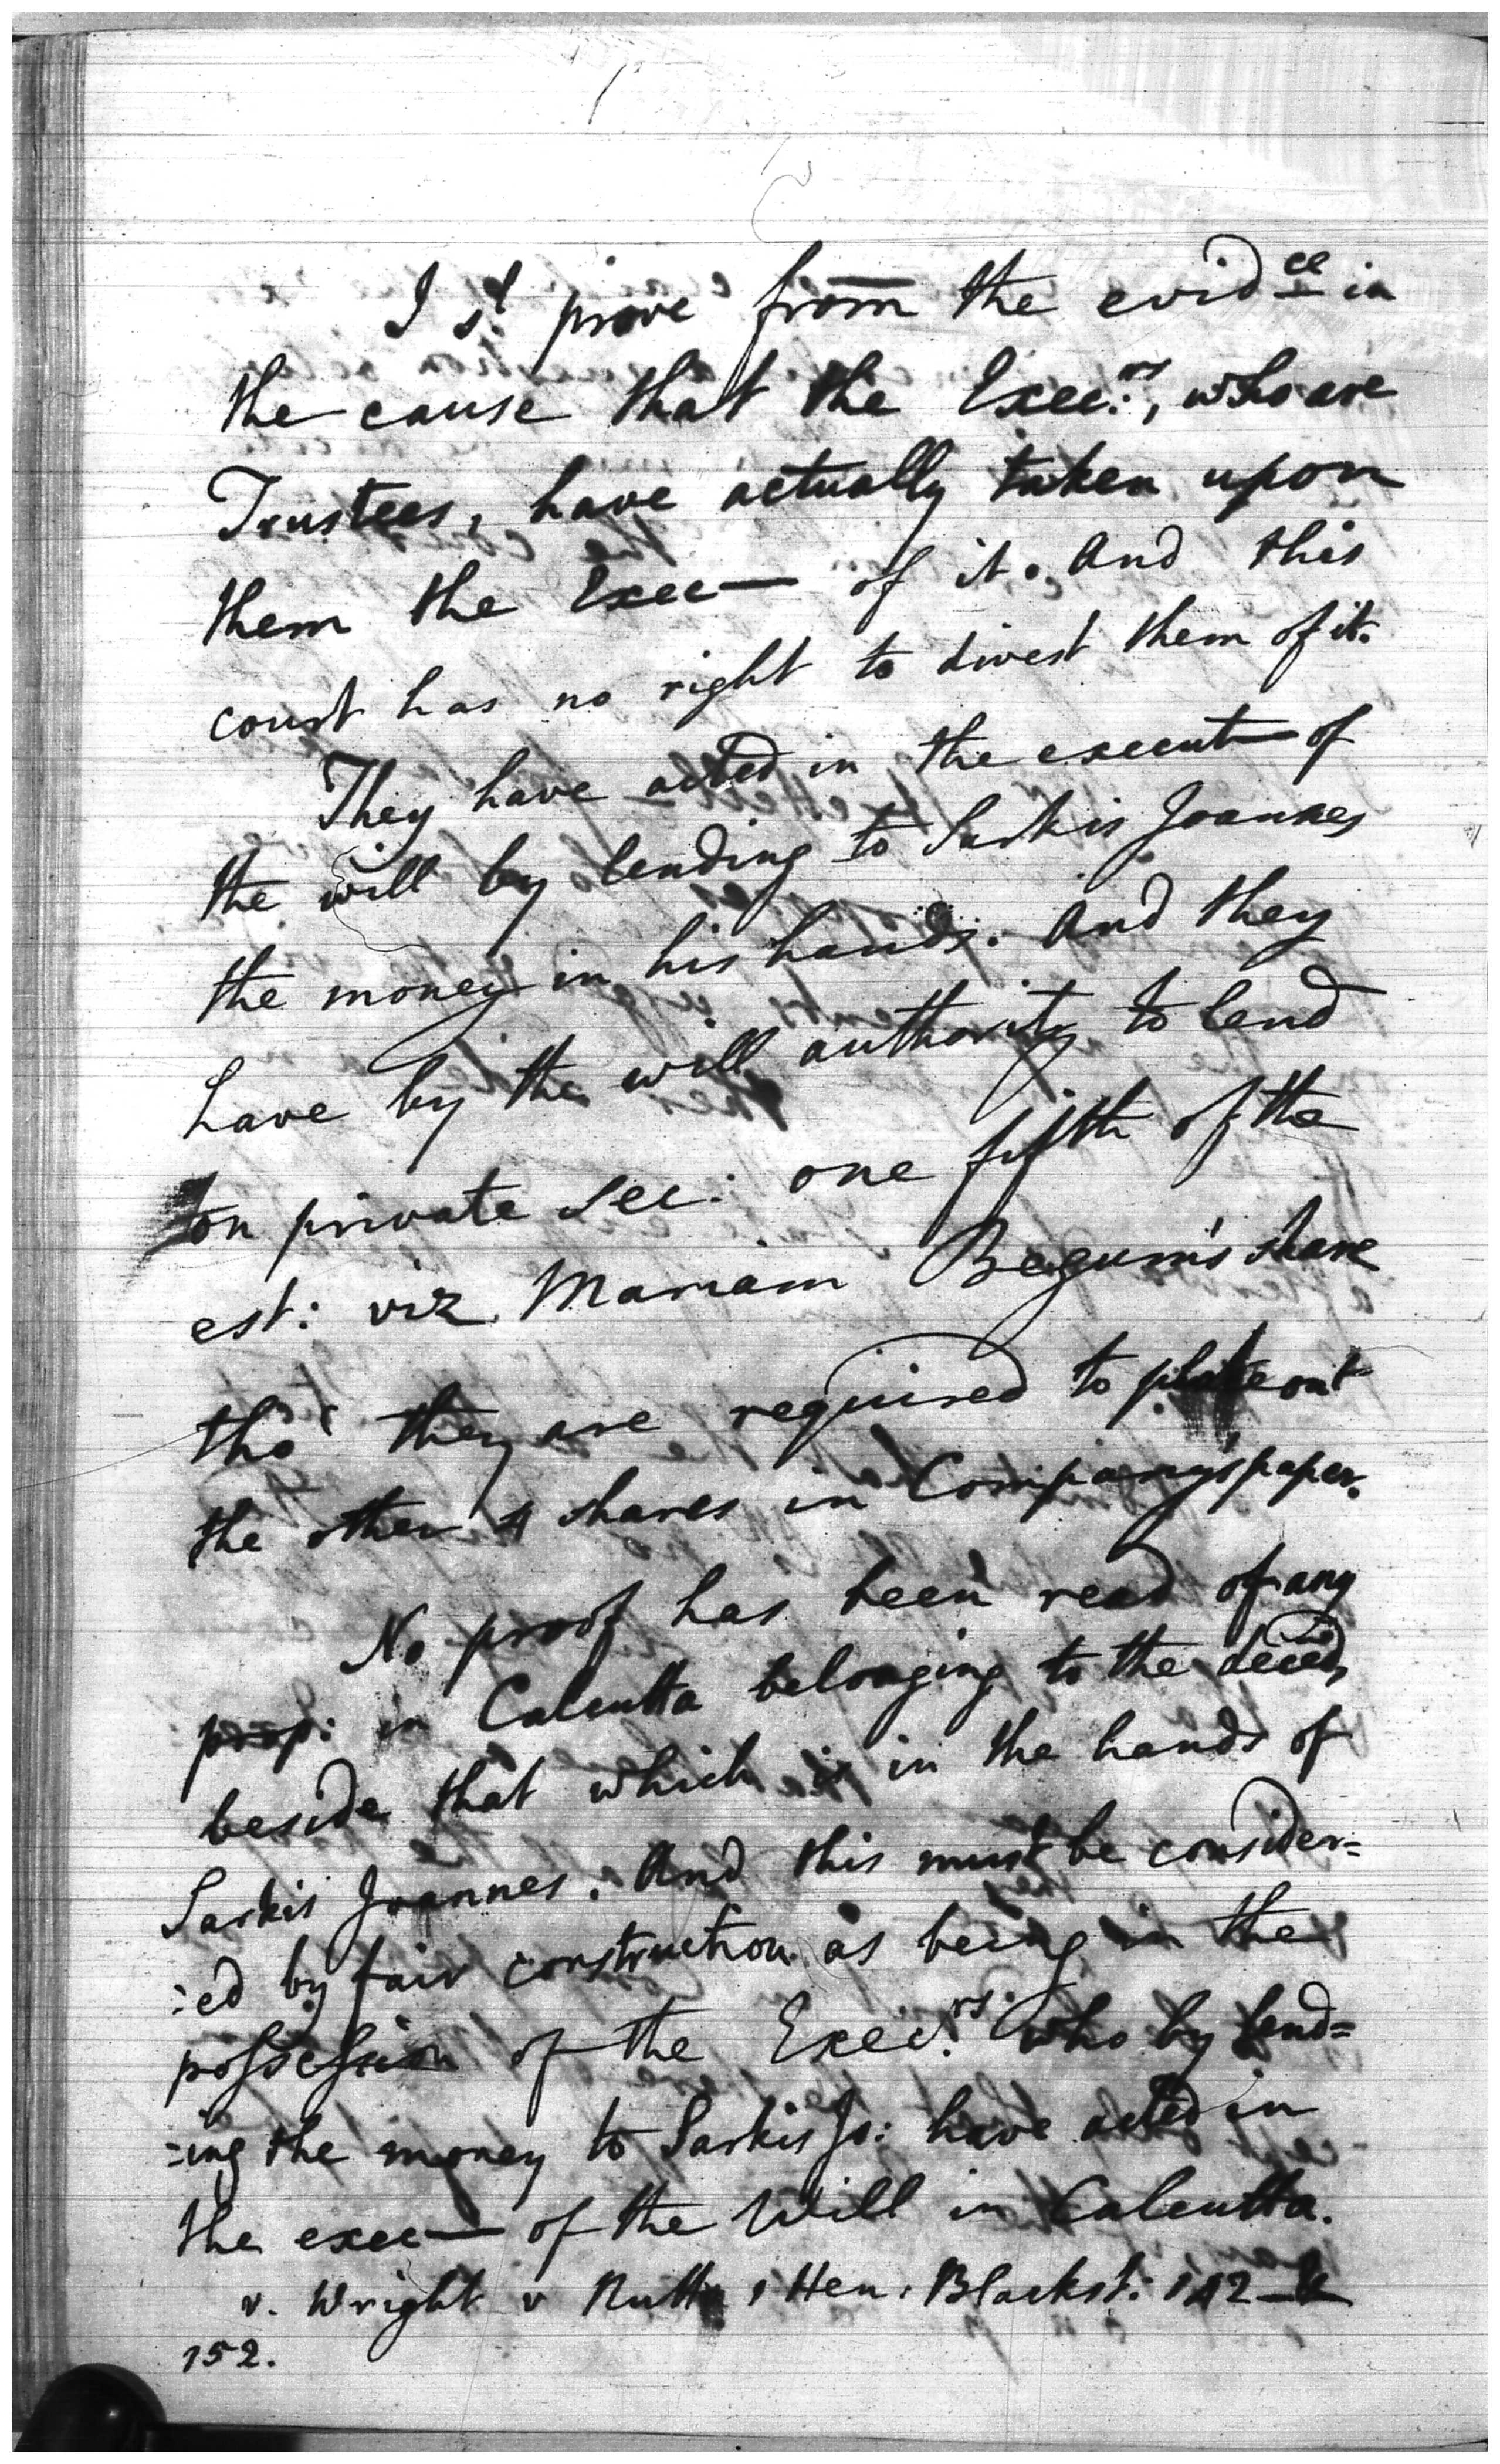 I sd. prove from the evidce in
the cause that the Execrs, who are
Trustees, have actually taken upon
them the Exec— of it. And this
court has no right to divest them of it.
They have acted in the execut— of
the will by lending to Sarkis Joannes
the money in his hands. And they
have by the will authority to lend
on private sec: one fifth of the
est: viz. Mariam Begum's share
tho' they are required to place out
the other 4 shares in Company's paper.
No proof has been read of any
prop: in Calcutta belonging to the deced,
beside that which is in the hands of
Sarkis Joannes. And this must be consider=
:ed by fair construction as being in the
possession of the Execrs. who by lend=
:ing the money to Sarkis Jo: have acted in
the exec— of the Will in Calcutta.
v. Wright v Nutt 1 Hen: Blackst: 142 —
152.